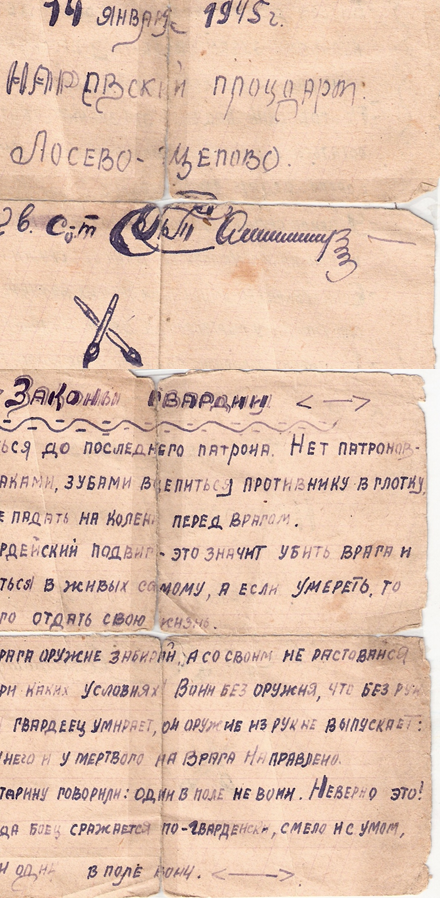 14 января 1945г.
НАРЕВСКИЙ плацдарт.
Лосево-Цепово.
Гв. с-т
Законы гвардии
ься до последнего патрона. Нет патронов-
аками, зубами вцепиться противнику в глотку,
е падать на колени перед врагом.
рдейский подвиг - это значит убить врага и
ться в живых самому, а если умереть, то
го отдать свою жизнь.
рага оружие забирай, а со своим не расставайся
ри каких условиях Воин без оружия, что без рук
гвардеец умирает, он оружие из рук не выпускает:
него и у мертвого на врага направлено.
тарину говорили: один в поле не воин. Неверно это!
да боец сражается по-гварденски, смело и с умом,
и один в поле воин.